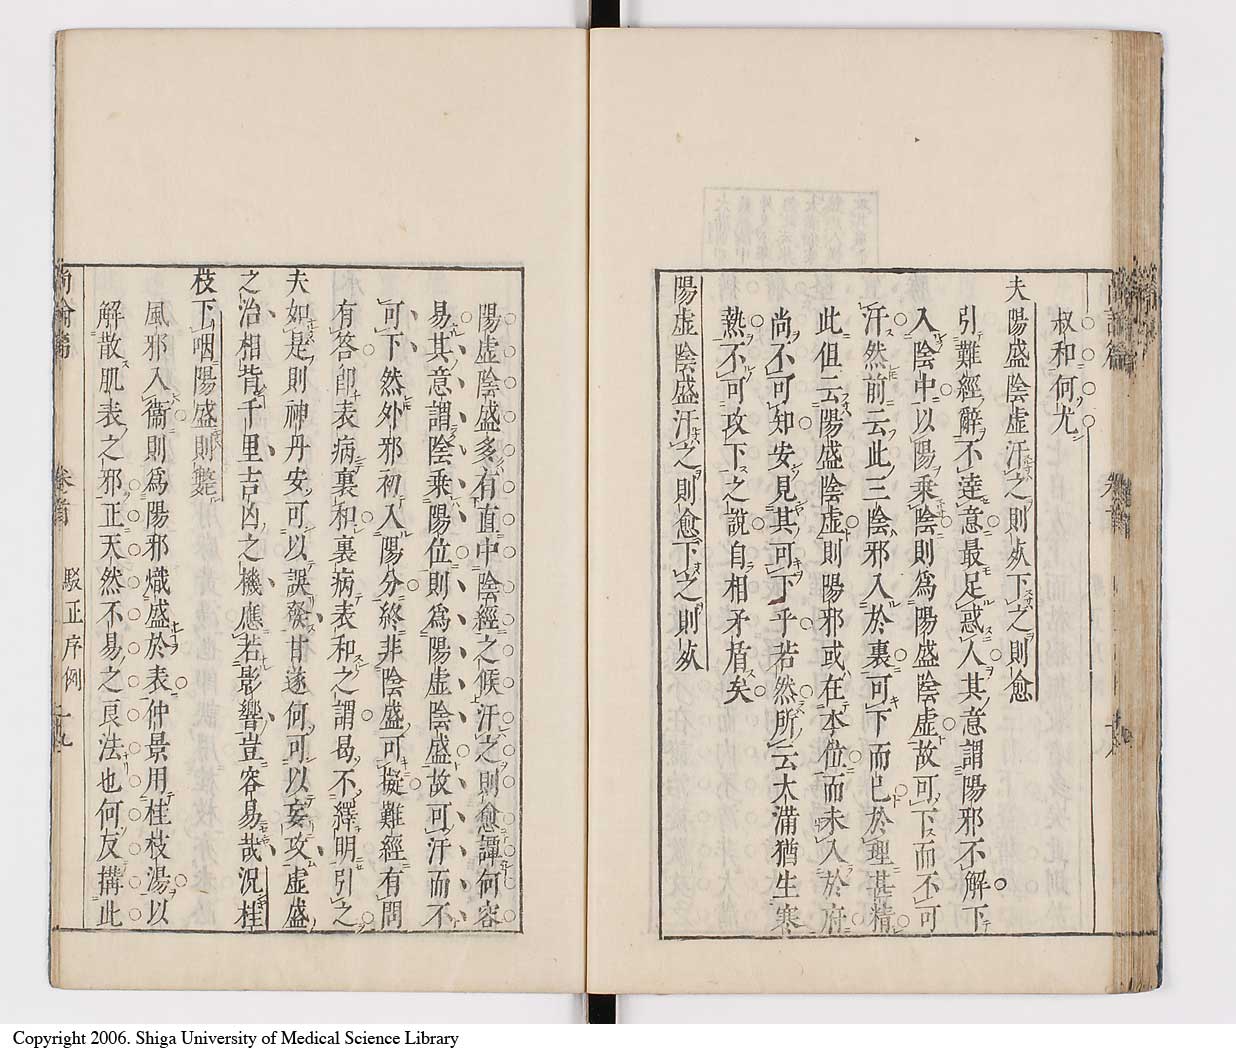 叔和何尤
夫陽盛陰虛汗之則死下之則愈
引難經辭不達意最足惑人其意謂陽邪不解下
入陰中以陽乘陰則為陽盛陰虛故可下而不可
汗然前云此三陰邪入於裏可下而已於理甚精
此但云陽盛陰虛則陽邪或在本位而未入於府
尚不可知安見其可下乎若然所云大滿猶生寒
熱不可攻下之說自相矛盾矣
陽虛陰盛汗之則愈下之則死
陽虛陰盛多有直中陰經之候汗之則愈譚何容
易其意謂陰乘陽位則為陽虛陰盛故可汗而不
可下然外邪初入陽分終非陰盛可擬難經有問
有答即表病裏和裏病表和之謂曷不繹明引之
夫如是則神丹安可以誤發甘遂何可以妄攻虛盛
之治相背千里吉凶之機應若影響豈容易哉況桂
枝下咽陽盛則斃
風邪入衞則為陽邪熾盛於表仲景用桂枝湯以
解散肌表之邪正天然不易之良法也何反搆此
尚論篇 卷首 駁正序例 十九